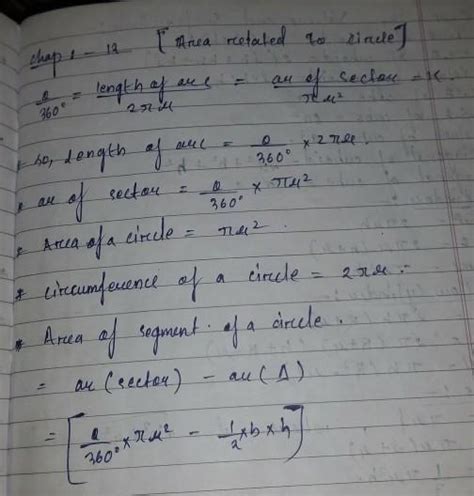 Chap 1 - 12 [Area related to circle]
θ/360° = length of arc/2πr = ar of sector/πr² = K.
* so, Length of arc = θ/360° × 2πr.
* ar of sector = θ/360° × πr²
* Area of a circle = πr².
* Circumference of a circle = 2πr.
* Area of segment of a circle.
= ar (sector) - ar (Δ)
= [θ/360° × πr² - 1/2 × b × h]